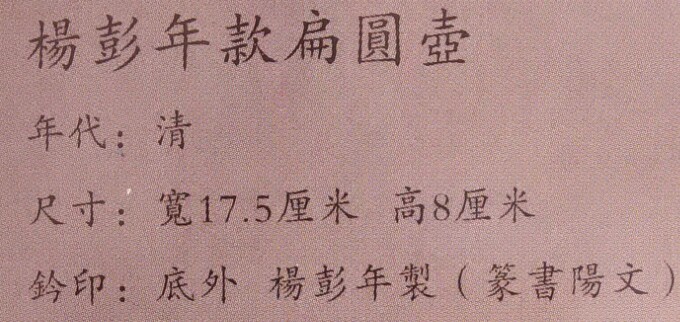 楊彭年款扁圓壺
年代：清
尺寸：寬17.5厘米 高8厘米
鈐印：底外 楊彭年製（篆書陽文）